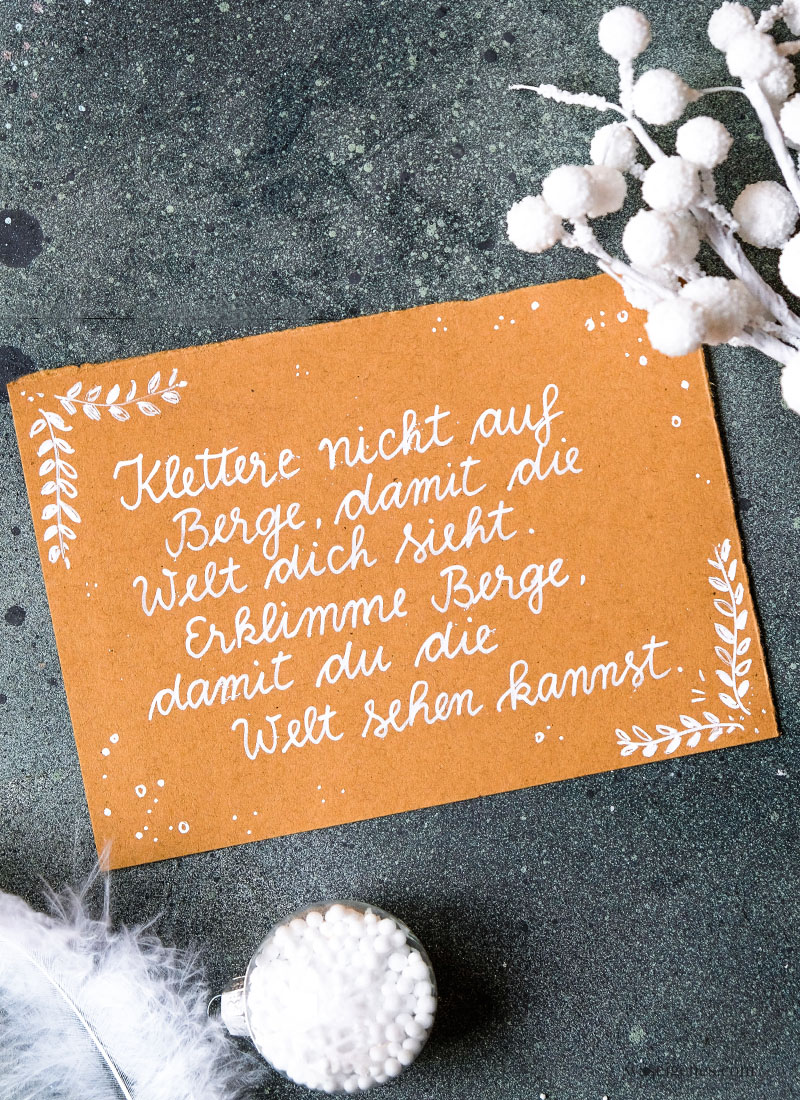 Klettere nicht auf
Berge, damit die
Welt dich sieht.
Erklimme Berge,
damit du die
Welt sehen kannst.